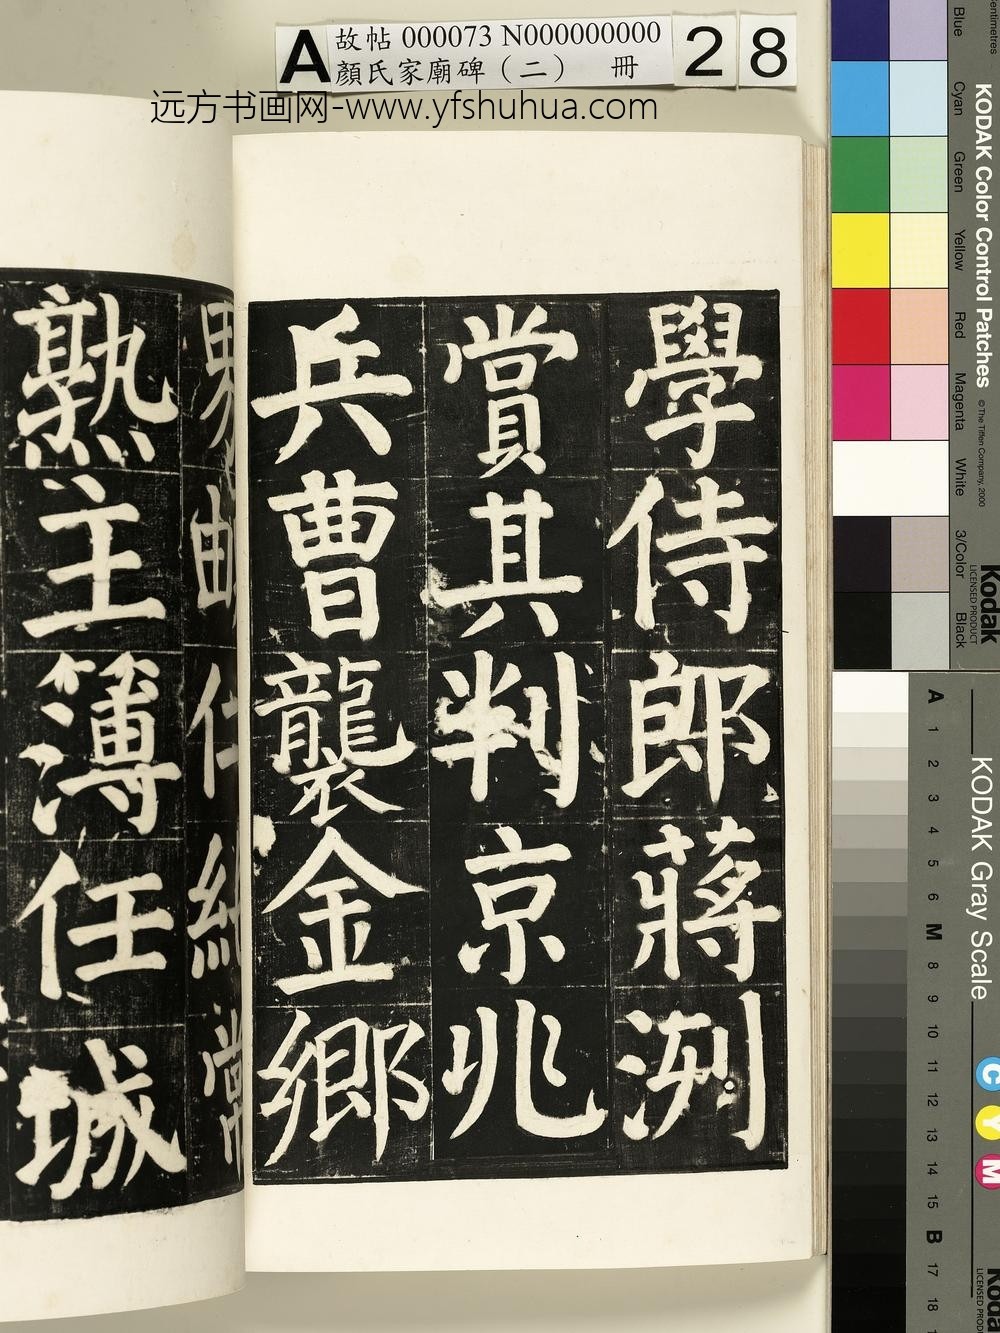 A
故帖 000073 N000000000
顏氏家廟碑（二） 冊
28
远方书画网-www.yfshuhua.com
學侍郎蔣洌
賞其判京兆
兵曹襲金鄉
熟主簿任城
KODAK Color Control Patches
© The Tiffen Company, 2000
Kodak
LICENSED PRODUCT
Blue
Cyan
Green
Yellow
Red
Magenta
White
3/Color
Black
KODAK Gray Scale
A 1 2 3 4 5 6 M 8 9 10 11 12 13 14 15 B 17 18
C
Y
M